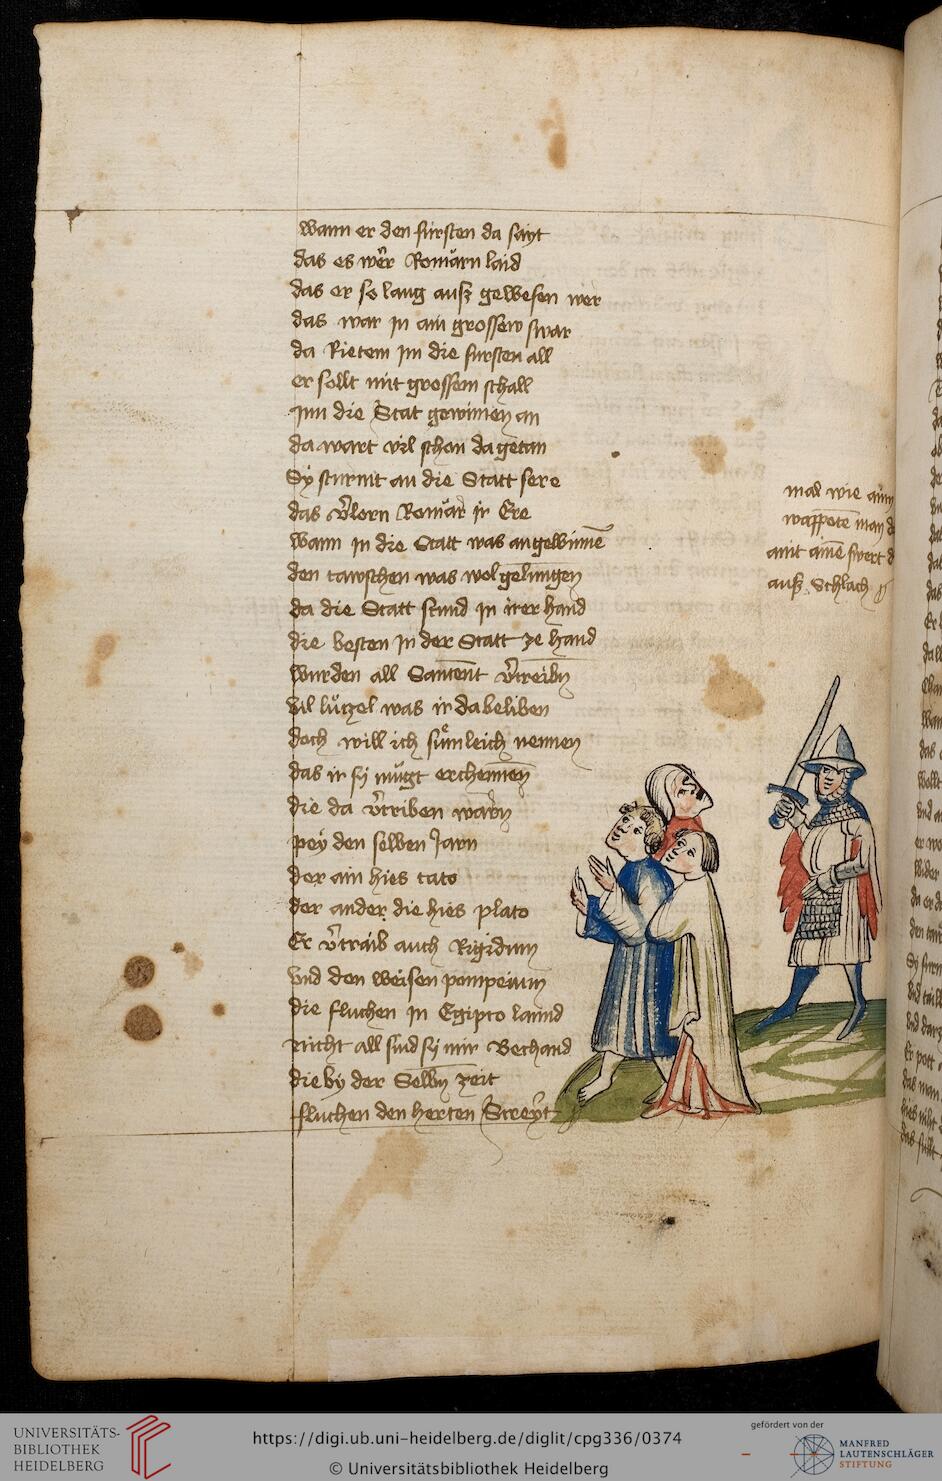 wann er den fürsten da sayt
das es wer Romärn laid
das er so lang ausz gewesen wer
das war jn ain grossew swar
da Rietem jm die fursten all
er sollt mit grossem schall
jnn die Stat gewinnen an
da wart vil schon da getan
Sÿ sturmt an die Statt sere
das v̄lorn Romär ir Ere
wann jn die Statt was angewinnē
den tawschen was wol gelungen
da die Statt stund jn irer hand
die besten jn der Statt ze hand
wurden all v̄treibn
vil lützel was ir da beliben
doch will ich sümleich nennen
das ir sÿ mügt erchennen
die da v̄triben warn
peÿ den selben Jarn
der ain hies cato
der ander die hies plato
Er v̄traib auch Rigidum
vnd den weisen pompeium
die fluchen jn Egipto lannd
nicht all sind sÿ mir Bechand
die bÿ der Selbn zeit
fluchen den herten Streyt
mal wie ain
wappote man d
mit aine swert d
ausz Schlach
UNIVERSITÄTS-
BIBLIOTHEK
HEIDELBERG
https://digi.ub.uni-heidelberg.de/diglit/cpg336/0374
© Universitätsbibliothek Heidelberg
gefördert von der
MANFRED
LAUTENSCHLÄGER
STIFTUNG